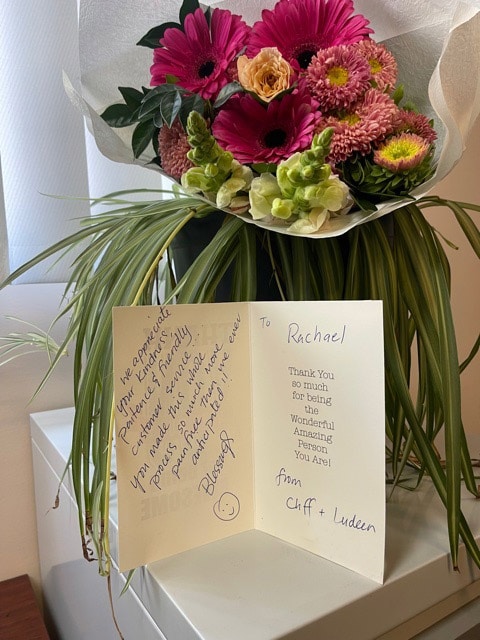 we appreciate
your kindness
patience & friendly
customer service
you made this whole
process so much more
pain free than we ever
anticipated!!
Blessings
To Rachael
Thank You
so much
for being
the
Wonderful
Amazing
Person
You Are!
from
Cliff + Ludeen